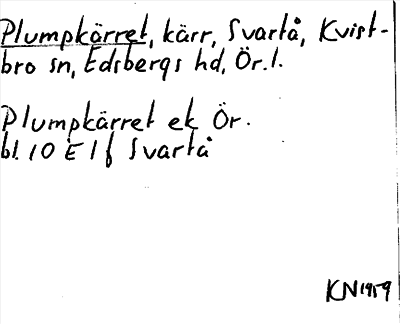 Plumpkärret, kärr, Svartå, Kvist-
bro sn, Edsbergs hd, Ör. l.
Plumpkärret ek Ör.
bl. 10 E 1 f Svartå
KN 1959